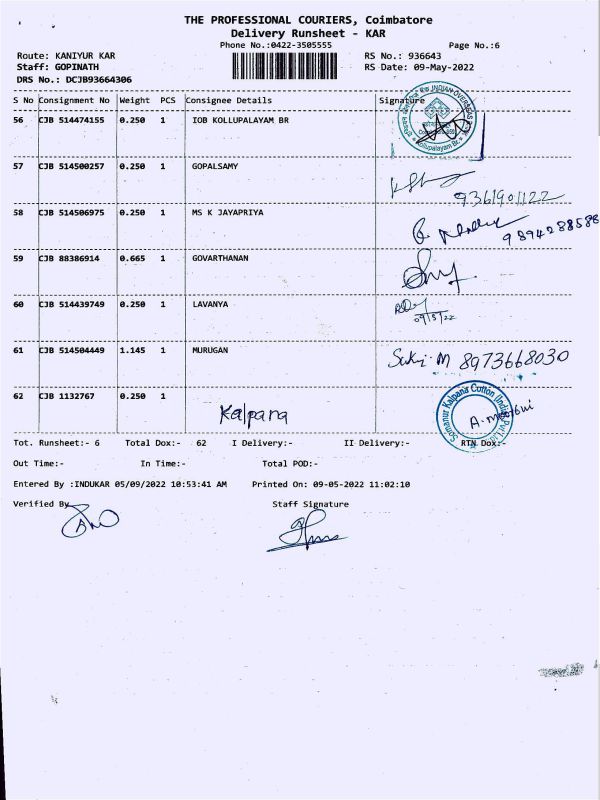 THE PROFESSIONAL COURIERS, Coimbatore
Delivery Runsheet - KAR
Phone No.:0422-3505555 Page No.:6
Route: KANIYUR KAR RS No.: 936643
Staff: GOPINATH RS Date: 09-May-2022
DRS No.: DCJB93664306
S No Consignment No Weight PCS Consignee Details Signature
56 CJB 514474155 0.250 1 IOB KOLLUPALAYAM BR
57 CJB 514500257 0.250 1 GOPALSAMY
9361901122
58 CJB 514506975 0.250 1 MS K JAYAPRIYA
9894288588
59 CJB 88386914 0.665 1 GOVARTHANAN
60 CJB 514439749 0.250 1 LAVANYA
09/5/22
61 CJB 514504449 1.145 1 MURUGAN Suki. M 8973668030
62 CJB 1132767 0.250 1 Kalpana
Somanur Kalpana Cotton (India) Pvt Ltd
Tot. Runsheet:- 6 Total Dox:- 62 I Delivery:- II Delivery:- RTN Dox:-
Out Time:- In Time:- Total POD:-
Entered By :INDUKAR 05/09/2022 10:53:41 AM Printed On: 09-05-2022 11:02:10
Verified By Staff Signature